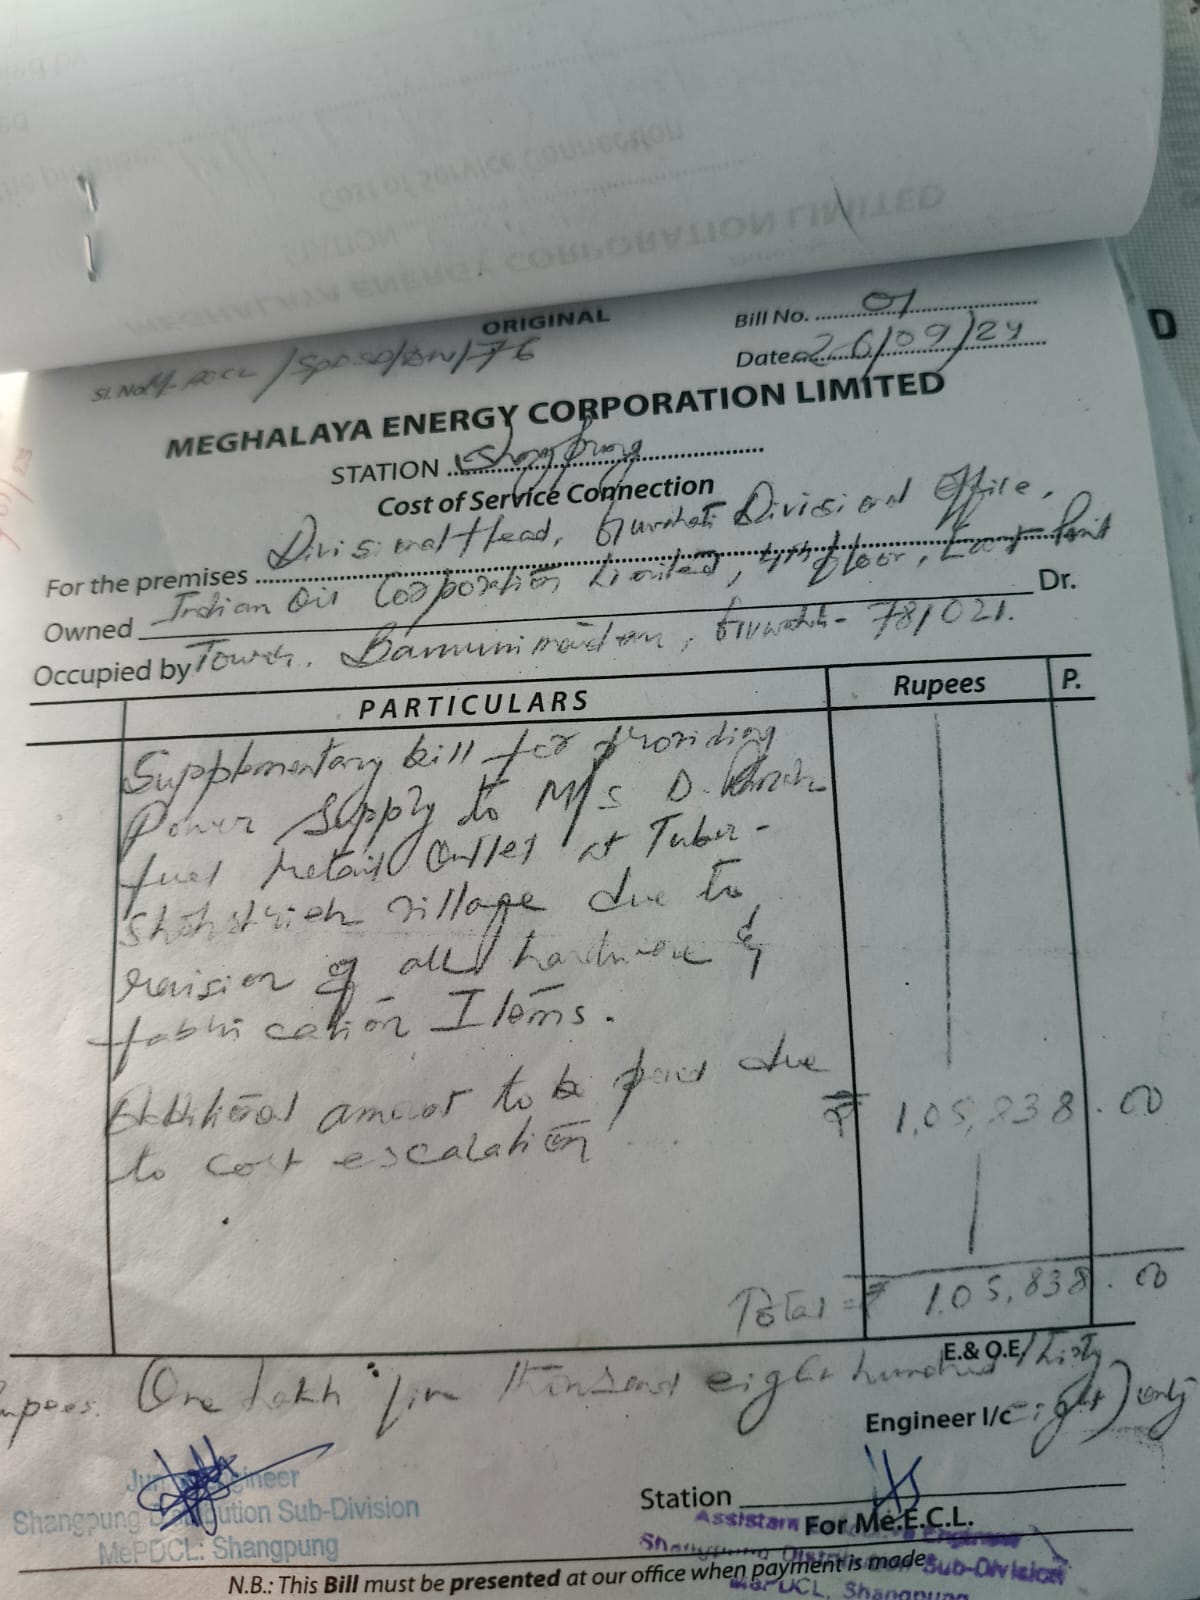 ORIGINAL
Bill No. 01
Sl. No. /76
Date 26/09/24
MEGHALAYA ENERGY CORPORATION LIMITED
STATION Shangpung
Cost of Service Connection
For the premises Divisional Head, Guwahati Divisional Office,
Owned Indian Oil Corporation Limited, 4th floor, East Point Dr.
Occupied by Tower, Bamunimaidan, Guwahati- 781021.
PARTICULARS Rupees P.
Supplementary bill for providing
Power Supply to M/S D.
fuel retail Outlet at Tuber-
shohshrieh village due to
revision of all hardware &
fabrication Items.
Additional amount to be paid due
to cost escalation ₹ 1,05,838.00
Total = ₹ 1,05,838.00
E.& O.E.
Rupees. One Lakh five thousand eight hundred thirty
eight) only
Engineer I/c
Junior Engineer
Shangpung Distribution Sub-Division
MePDCL: Shangpung
Station
For Me.E.C.L.
Assistant Executive Engineer
Shangpung Distribution Sub-Division
MePDCL, Shangpung
N.B.: This Bill must be presented at our office when payment is made.